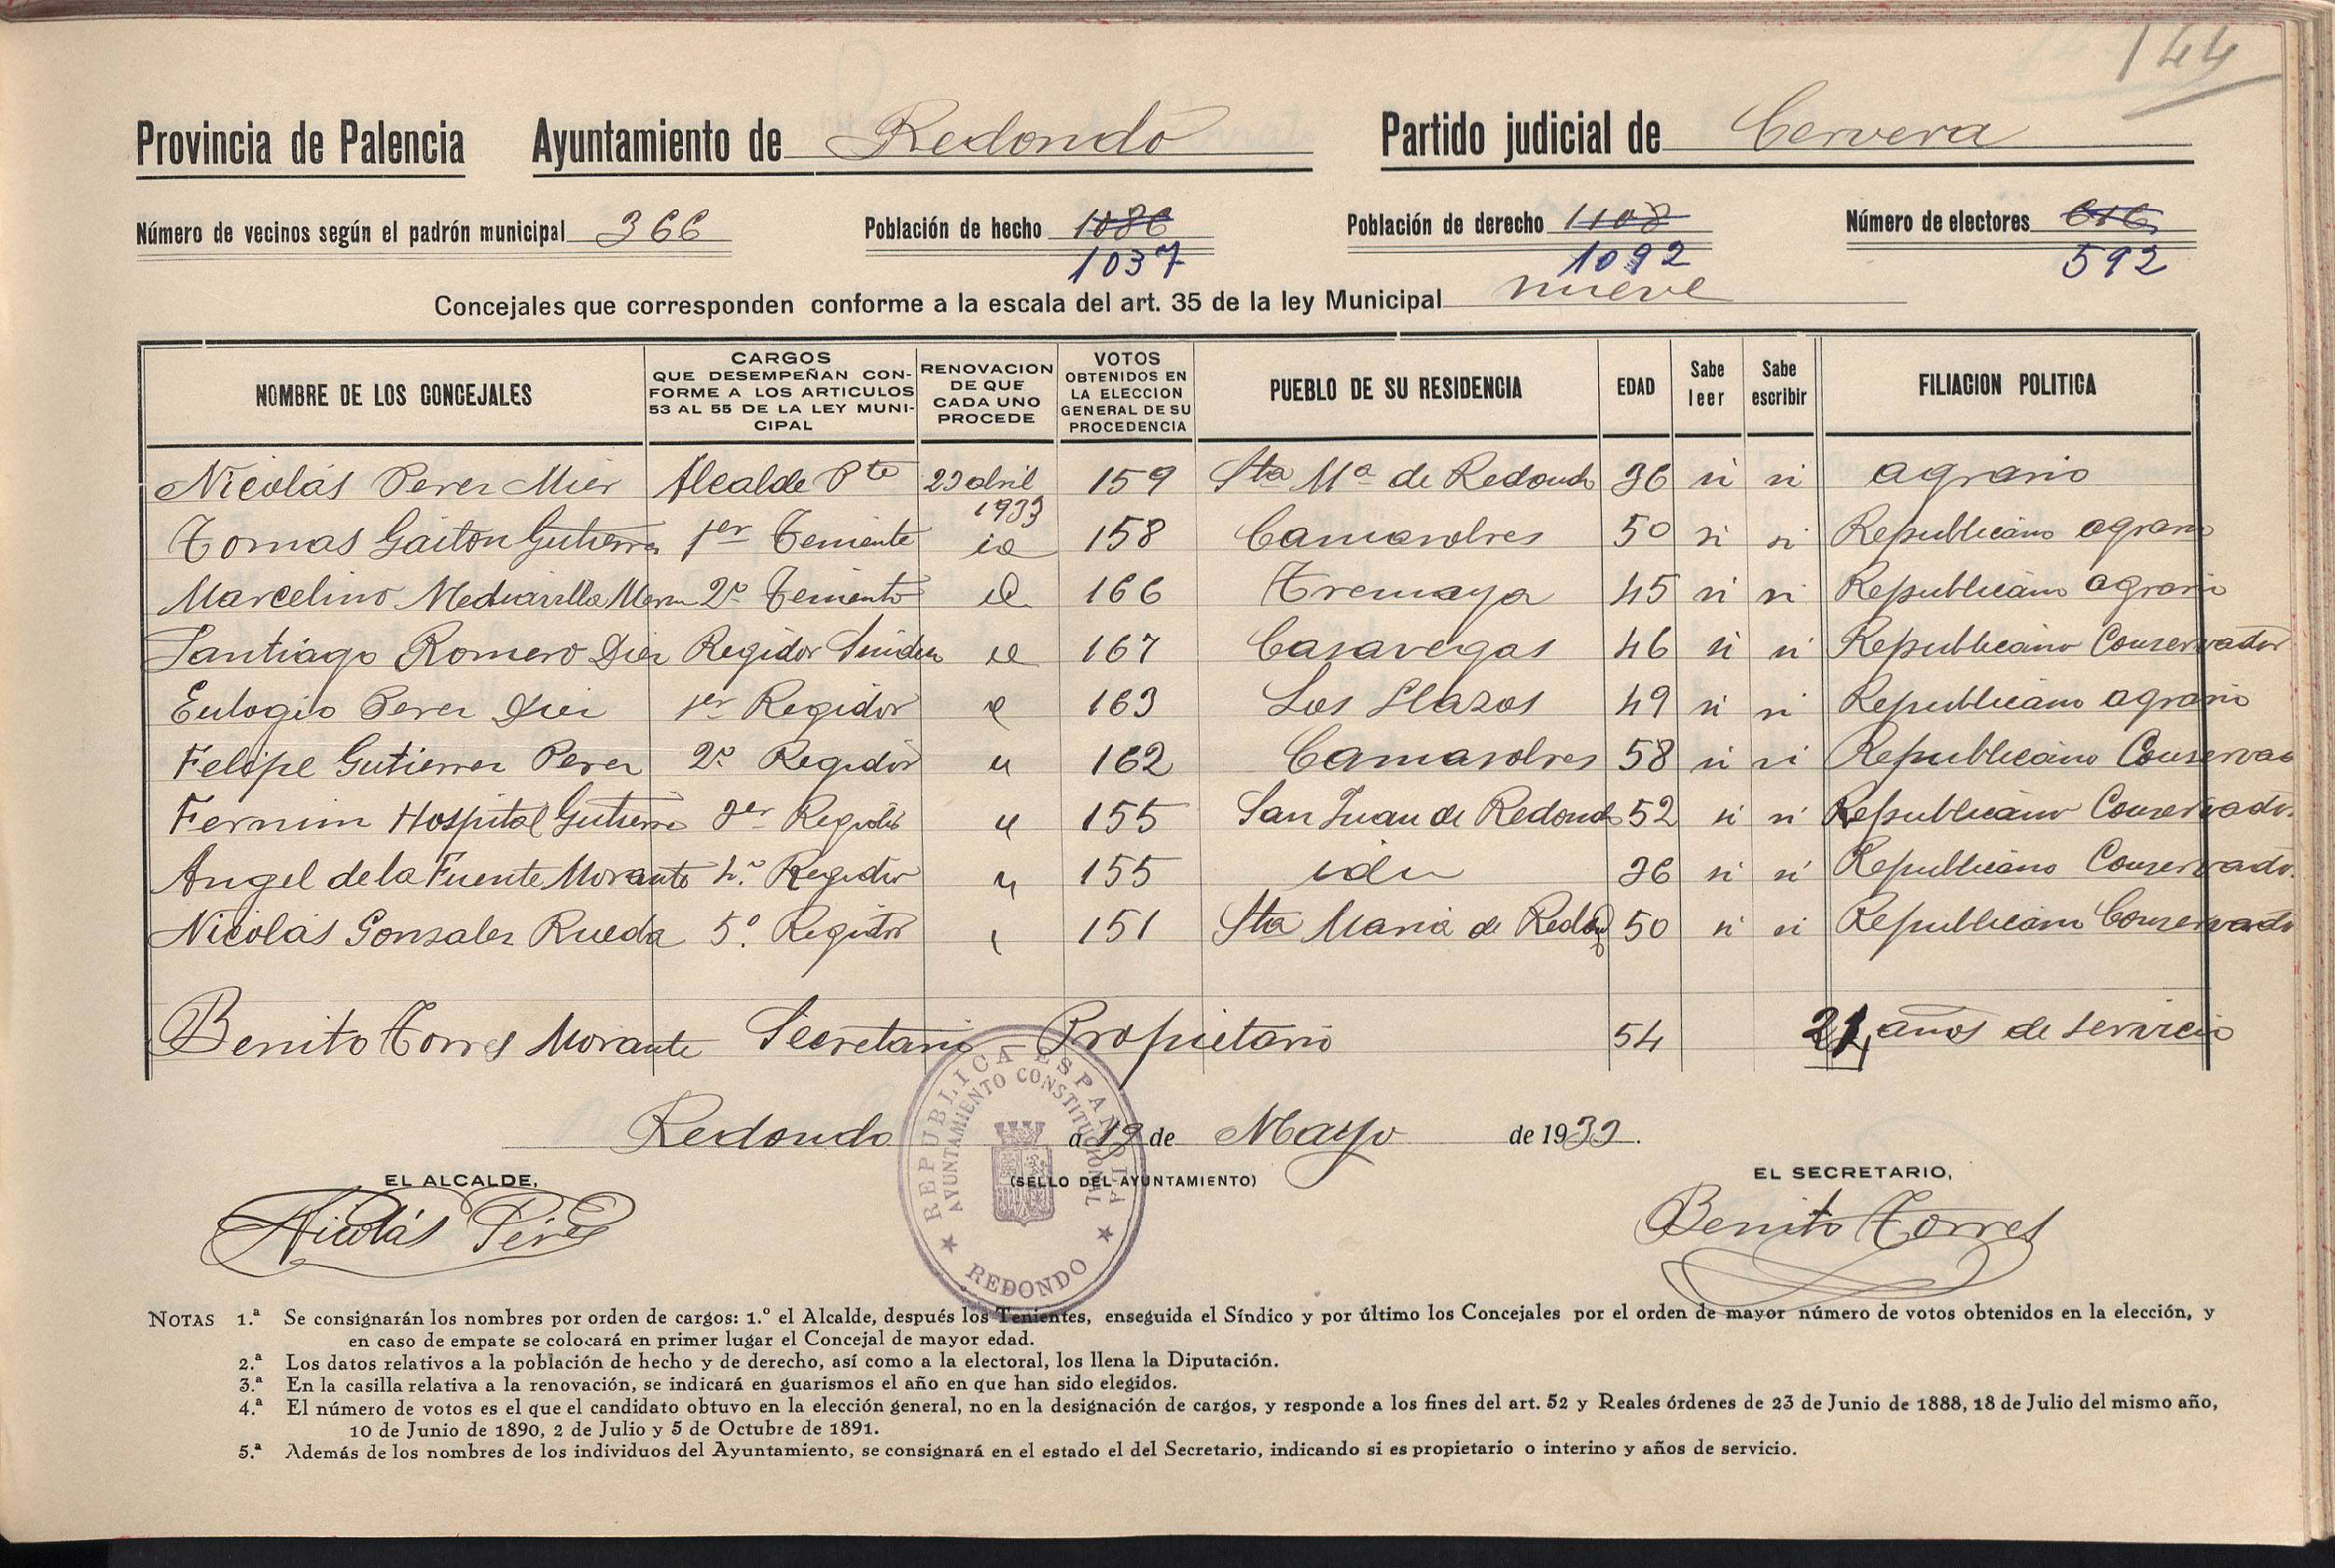 144
Provincia de Palencia Ayuntamiento de Redondo Partido judicial de Cervera
Número de vecinos según el padrón municipal 366 Población de hecho 1086 Población de derecho 1108 Número de electores 616
1037 1092 592
Concejales que corresponden conforme a la escala del art. 35 de la ley Municipal nueve
NOMBRE DE LOS CONCEJALES CARGOS QUE DESEMPEÑAN CON-FORME A LOS ARTICULOS 53 AL 55 DE LA LEY MUNI-CIPAL RENOVACION DE QUE CADA UNO PROCEDE VOTOS OBTENIDOS EN LA ELECCION GENERAL DE SU PROCEDENCIA PUEBLO DE SU RESIDENCIA EDAD Sabe leer Sabe escribir FILIACION POLITICA
Nicolás Perez Mier Alcalde Pte 23 abril 1933 159 Sta Mª de Redondo 36 si si agrario
Tomas Gaiton Gutierrez 1er Teniente id 158 Camasobres 50 si si Republicano agrario
Marcelino Mediavilla 2º Teniente id 166 Tremaya 45 si si Republicano agrario
Santiago Romero Diez Regidor Sindico id 167 Casavegas 46 si si Republicano Conservador
Eulogio Perez Diez 1er Regidor id 163 Los Llazos 49 si si Republicano agrario
Felipe Gutierrez Perez 2º Regidor " 162 Camasobres 58 si si Republicano Conservad
Fermin Hospital Gutierre 3er Regidor " 155 San Juan de Redondo 52 si si Republicano Conservador
Angel de la Fuente Morante 4º Regidor " 155 idem 36 si si Republicano Conservador
Nicolás Gonzalez Rueda 5º Regidor " 151 Sta Maria de Redondo 50 si si Republicano Conservador
Benito Torres Morante Secretario Propietario 54 21 años de servicio
Redondo a 19 de Mayo de 1933.
EL ALCALDE, (SELLO DEL AYUNTAMIENTO) EL SECRETARIO,
Nicolás Pérez Benito Torres
REPUBLICA ESPAÑOLA
AYUNTAMIENTO CONSTITUCIONAL
★ REDONDO ★
NOTAS 1.ª Se consignarán los nombres por orden de cargos: 1.º el Alcalde, después los Tenientes, enseguida el Síndico y por último los Concejales por el orden de mayor número de votos obtenidos en la elección, y
en caso de empate se colocará en primer lugar el Concejal de mayor edad.
2.ª Los datos relativos a la población de hecho y de derecho, así como a la electoral, los llena la Diputación.
3.ª En la casilla relativa a la renovación, se indicará en guarismos el año en que han sido elegidos.
4.ª El número de votos es el que el candidato obtuvo en la elección general, no en la designación de cargos, y responde a los fines del art. 52 y Reales órdenes de 23 de Junio de 1888, 18 de Julio del mismo año,
10 de Junio de 1890, 2 de Julio y 5 de Octubre de 1891.
5.ª Además de los nombres de los individuos del Ayuntamiento, se consignará en el estado el del Secretario, indicando si es propietario o interino y años de servicio.